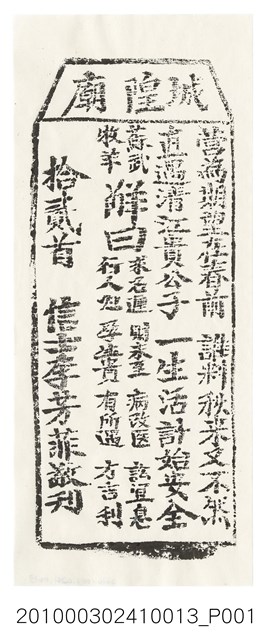 城隍廟
營為期望在春前 誰料秋來又不然
直遇清江貴公子 一生活計始安全
蘇武牧羊
解曰
求名遲 未至 病改醫 訟宜息
行人 孕 貴 有所遇 方吉利
拾貳首 信士李芳菲敬刊
201000302410013_P001